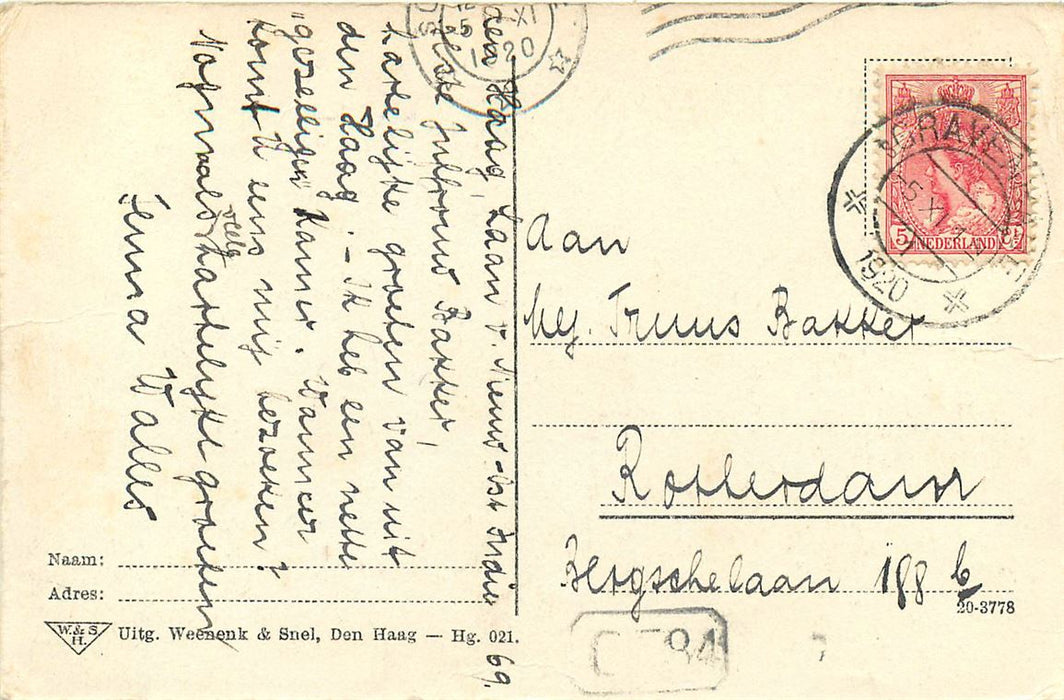 den Haag, Laan v. Nieuw-Oost Indië 69.
Beste Juffrouw Bakker,
Hartelijke groeten van uit
den Haag. - Ik heb een nette
"gezellige" kamer. Wanneer
komt U eens mij bezoeken?
Nogmaals veele hartelijke groeten
Jenna Walles
Aan
Mej. Truus Bakker
Rotterdam
Bergschelaan 188 b
'S GRAVENHAGE
1920
5 NEDERLAND Ct
XI
1920
Naam:
Adres:
W.&S.
H.
Uitg. Weenenk & Snel, Den Haag — Hg. 021.
20-3778
84